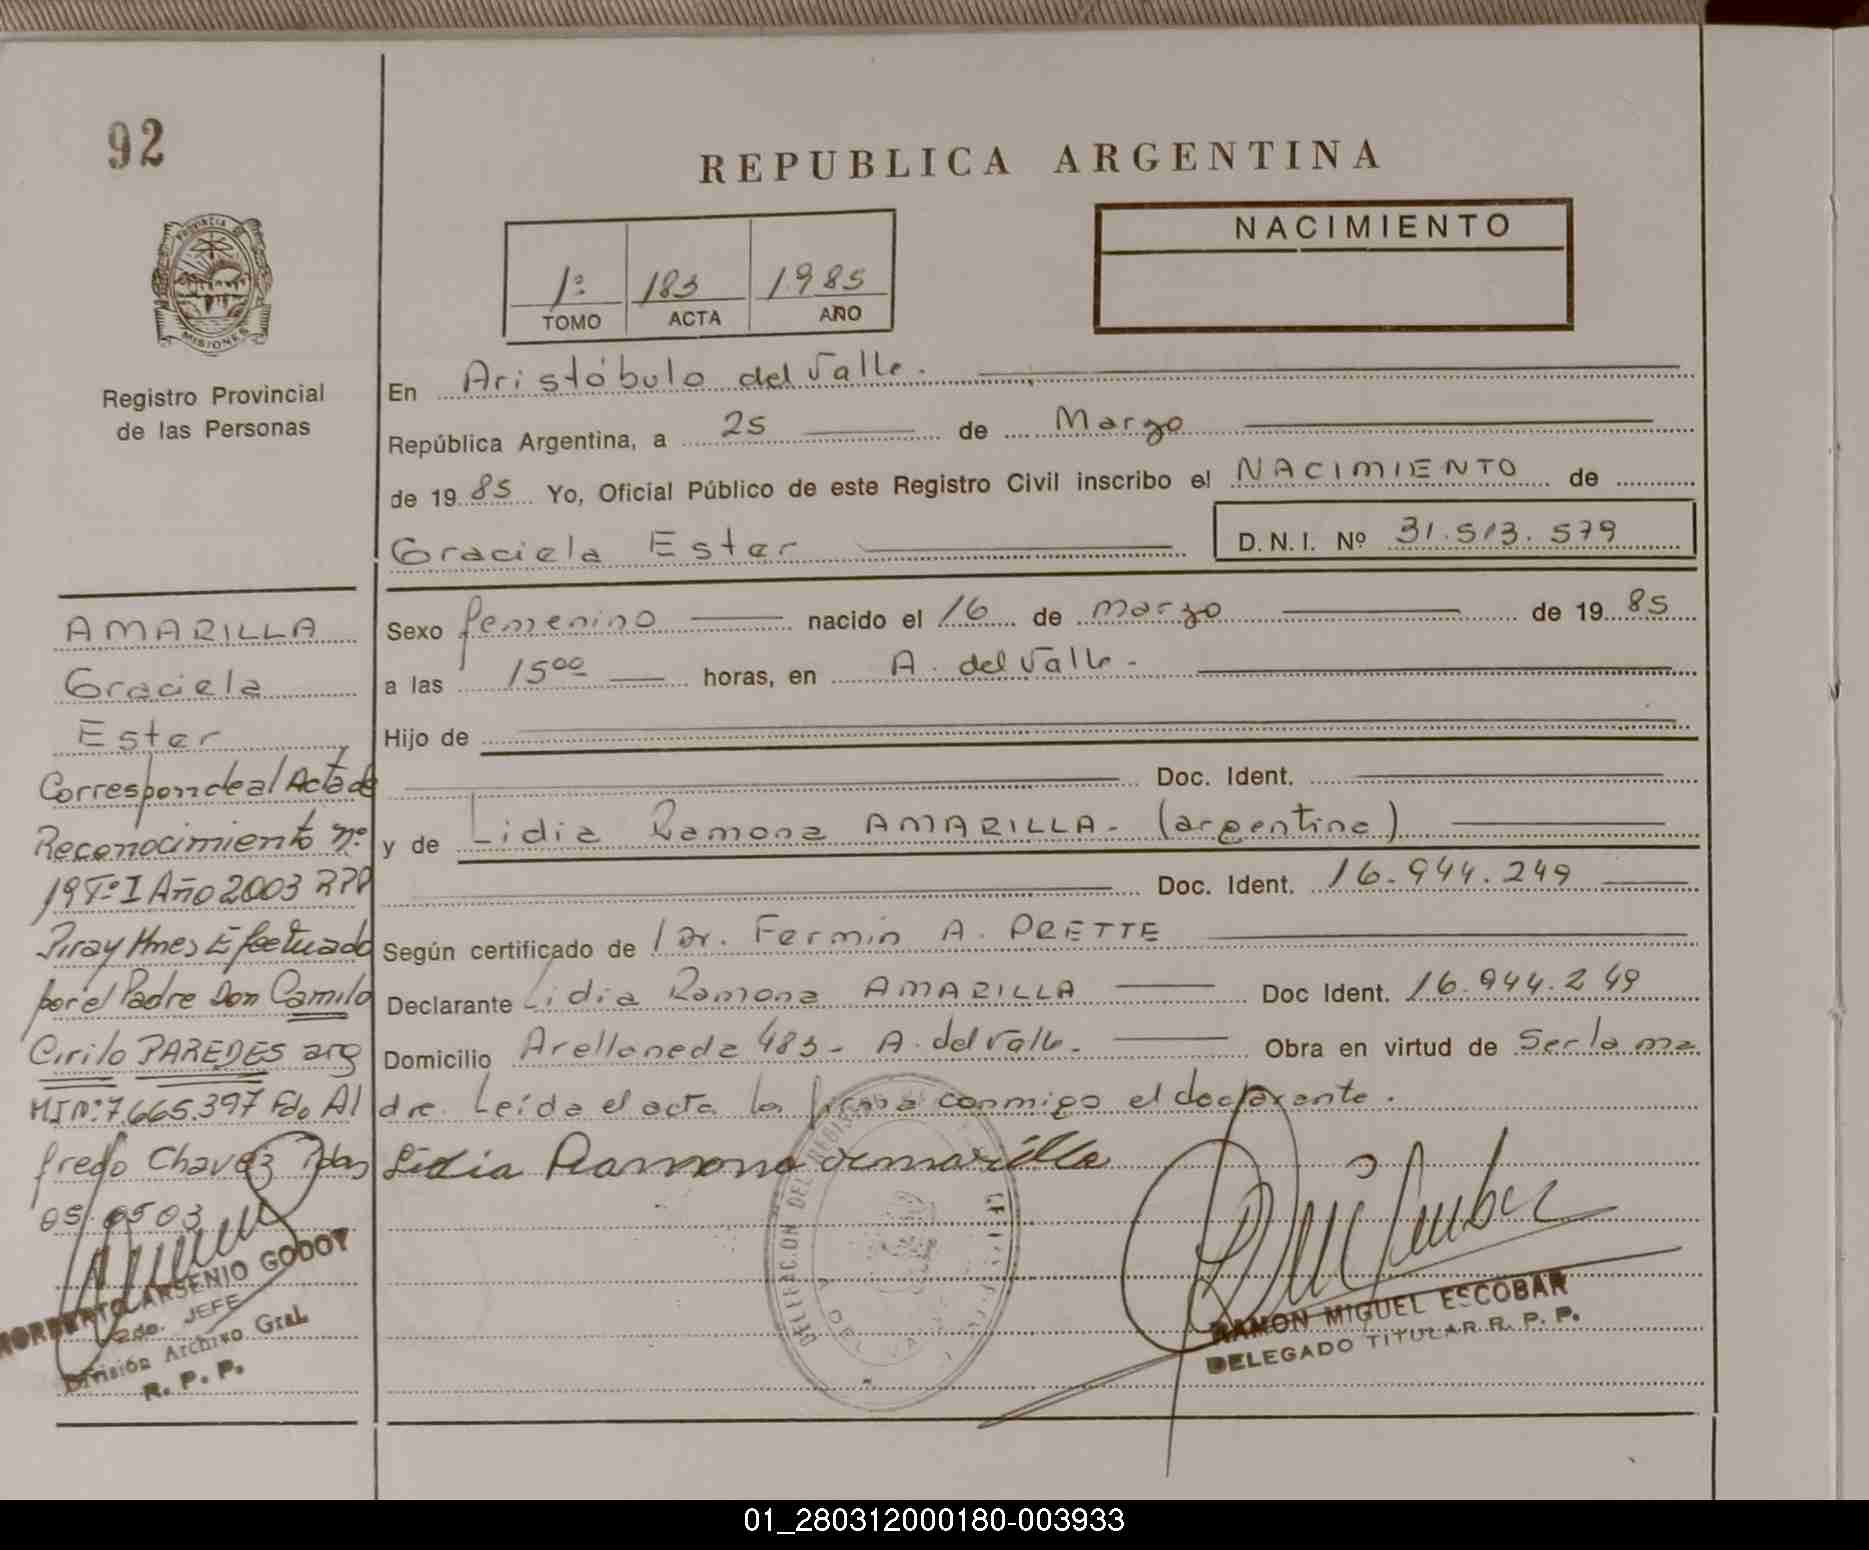 92
REPUBLICA ARGENTINA
PROVINCIA DE
MISIONES
Registro Provincial
de las Personas
1º 183 1985
TOMO ACTA AÑO
NACIMIENTO
En Aristóbulo del Valle.
República Argentina, a 25 de Marzo
de 1985 Yo, Oficial Público de este Registro Civil inscribo el NACIMIENTO de
Graciela Ester D.N.I. Nº 31.513.579
Sexo femenino nacido el 16 de marzo de 1985
a las 15⁰⁰ horas, en A. del Valle.
Hijo de
Doc. Ident.
y de Lidia Ramona AMARILLA- (argentina)
Doc. Ident. 16.944.249
Según certificado de Dr. Fermin A. PRETTE
Declarante Lidia Ramona AMARILLA Doc Ident. 16.944.249
Domicilio Arellaneda 483- A. del Valle. Obra en virtud de Ser la ma
dre. Leída el acta la firma conmigo el declarante.
Lidia Ramona Amarilla
DELEGACION DEL
RAMON MIGUEL ESCOBAR
DELEGADO TITULAR R. P. P.
AMARILLA
Graciela
Ester
Corresponde al Acta de
Reconocimiento nº
19 Tº I Año 2003 RPP
Piray Mnes Efectuado
por el Padre Don Camilo
Cirilo PAREDES arg
MI Nº 7.665.397 Fdo Al
fredo Chavez Pdas
05/0503
NORBERTO ARSENIO GODOY
2do. JEFE
División Archivo Gral
R. P. P.
01_280312000180-003933